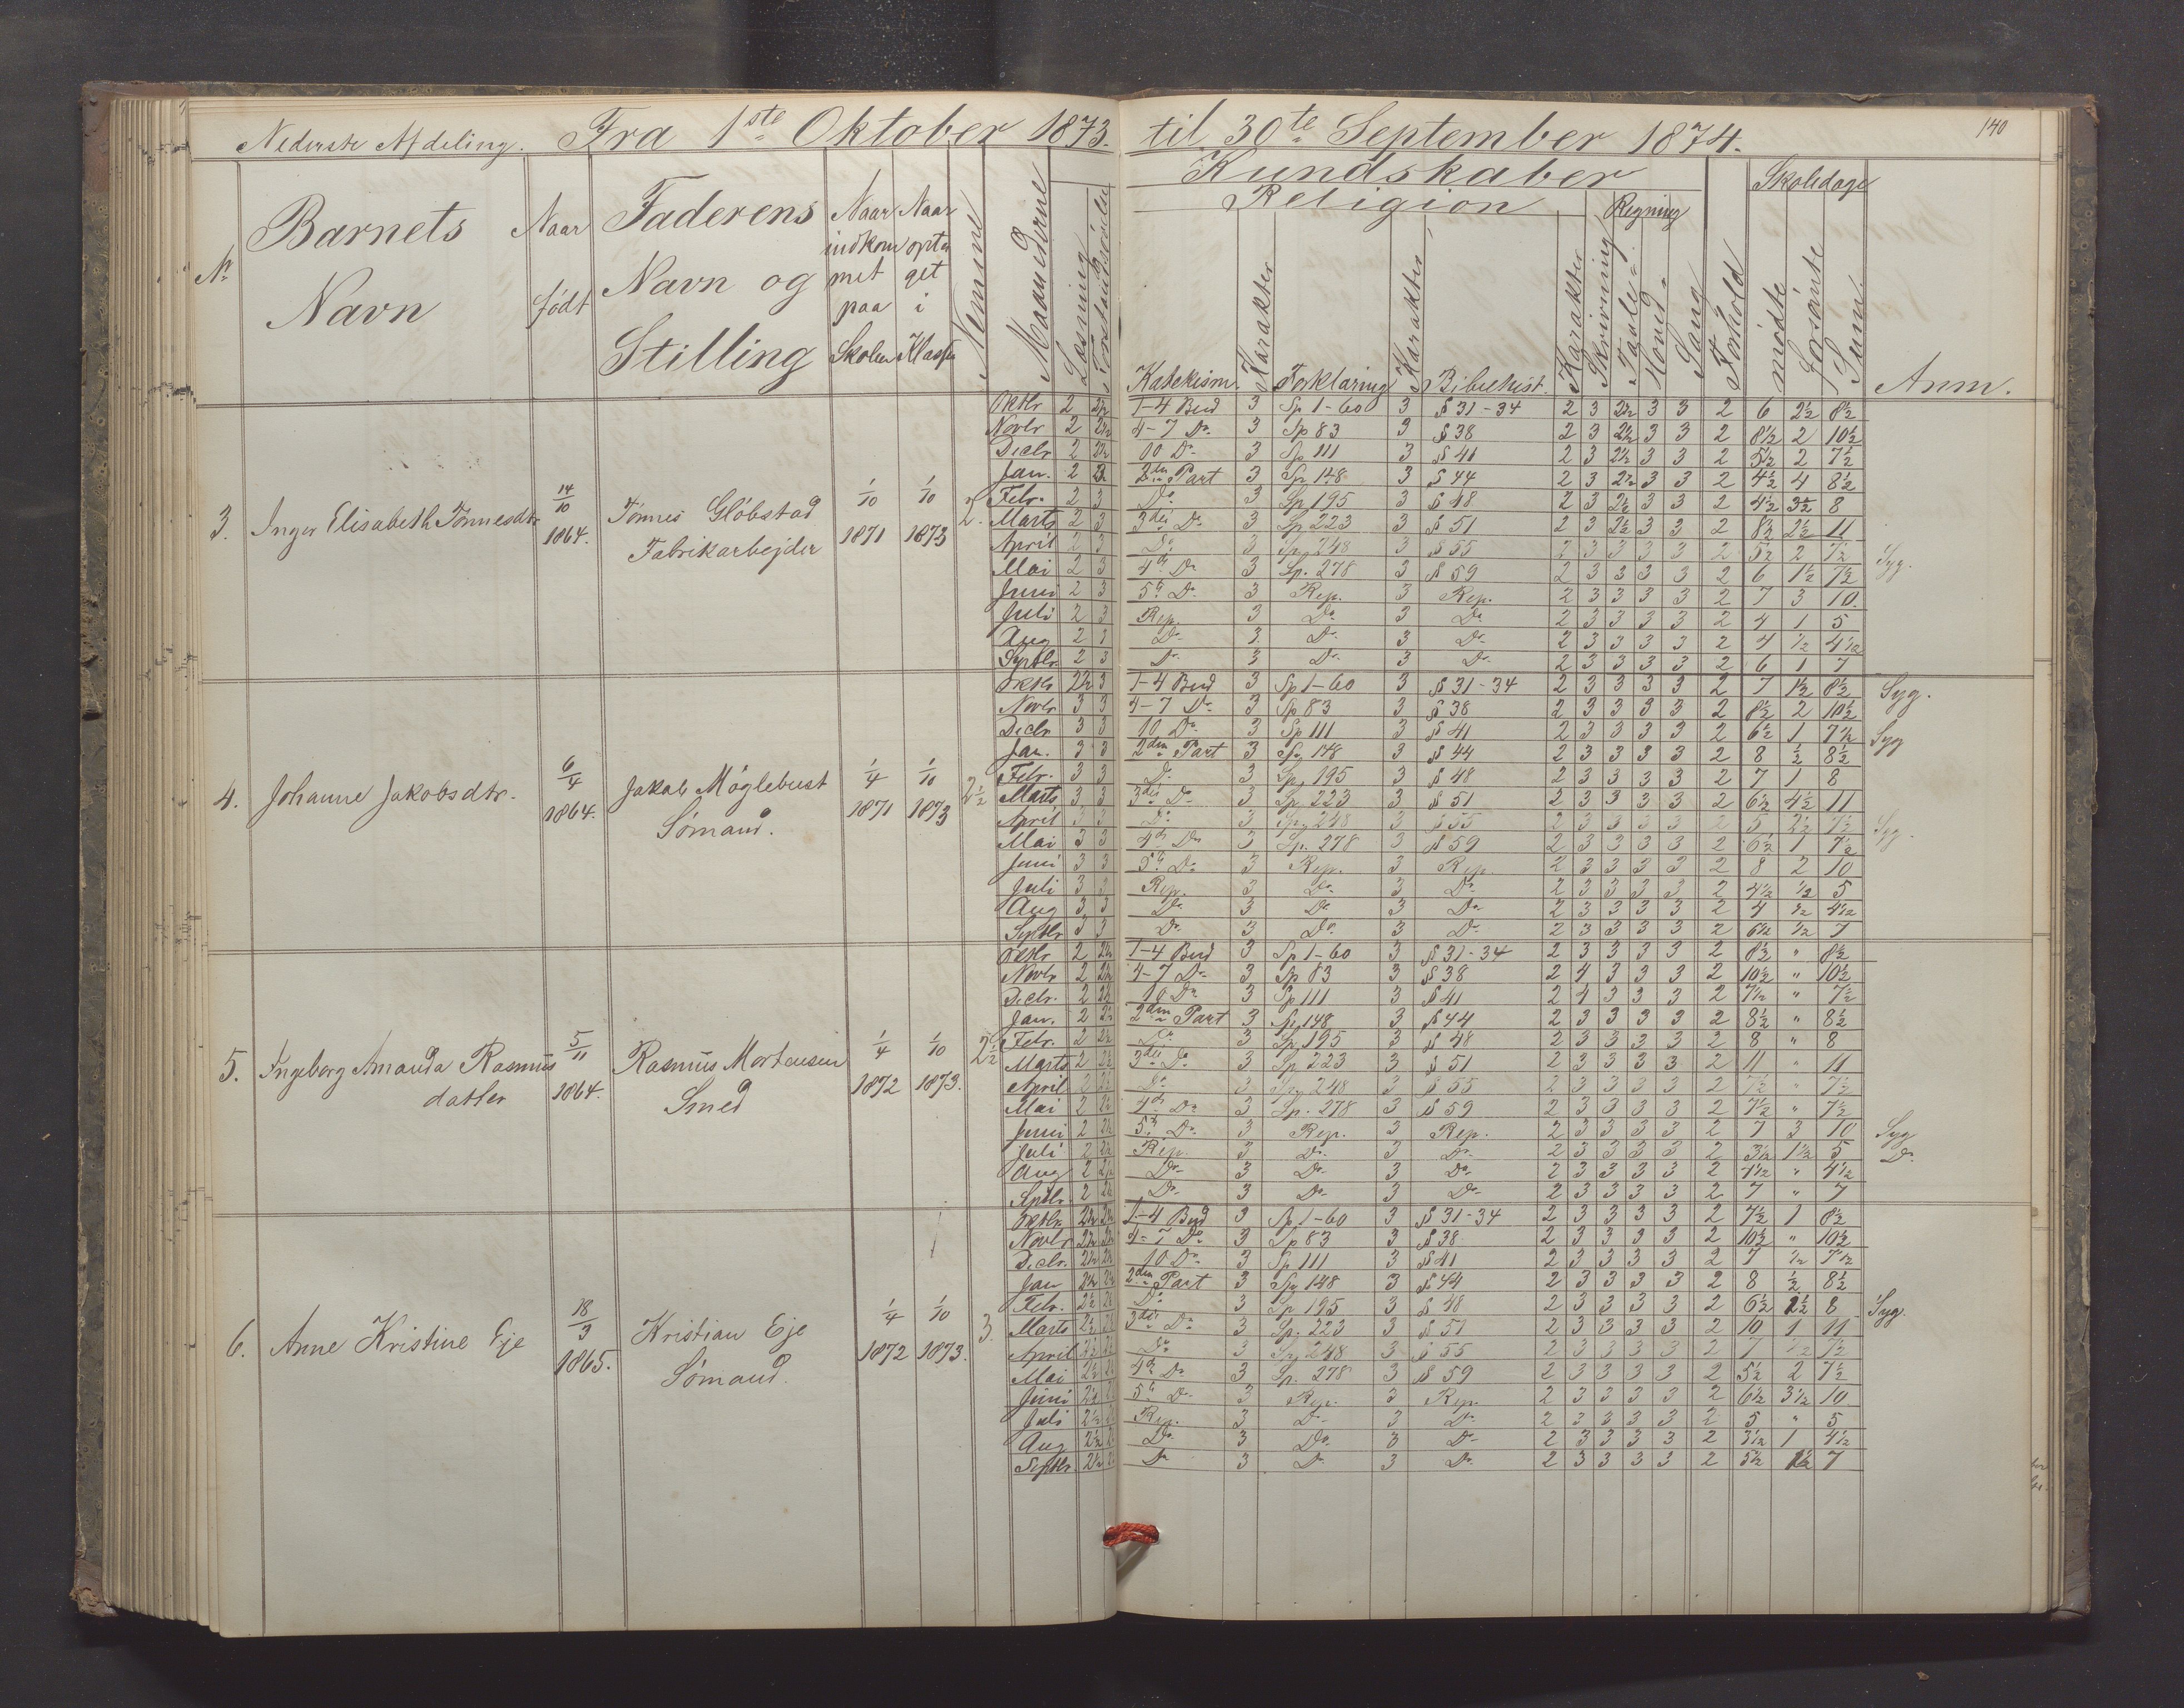 Nederste Afdeling. Fra 1ste Oktober 1873. til 30te September 1874. 140
Kundskaber Skoledage
Religion Regning
No Barnets Navn Naar født Faderens Navn og Stilling Naar indkommet paa Skolen Naar optaget i Klassen Nemme Maanederne Læsning Forstandsøvelse Katekism. Karakter Forklaring Karakter Bibelhist. Karakter Skrivning Tavle- Hoved- Sang Forhold mødte forsømte Sum Anm.
3. Inger Elisabeth Tønnesdtr 14/10 1864. Tønnes Gløbstad Fabrikarbejder 1/10 1871 1/10 1873 2.
Oktbr 2 2½ 1-4 Bud 3 Sp 1-60 3 § 31-34 2 3 2½ 3 3 2 6 2½ 8½
Novbr 2 2½ 4-7 Do 3 Sp 83 3 § 38 2 3 2½ 3 3 2 8½ 2 10½
Decbr 2 2½ 10 Do 3 Sp 111 3 § 41 2 3 2½ 3 3 2 5½ 2 7½
Jan. 2 2den Part 3 Sp 148 3 § 44 2 3 2½ 3 3 2 4½ 4 8½
Febr. 2 3 Do 3 Sp 195 3 § 48 2 3 2½ 3 3 2 4½ 3½ 8
Marts 2 3 3die Do 3 Sp 223 3 § 51 2 3 2½ 3 3 2 8½ 2½ 11
April 2 3 Do 3 Sp 248 3 § 55 2 3 3 3 3 2 5½ 2 7½ Syg.
Mai 2 3 4de Do 3 Sp. 278 3 § 59 2 3 3 3 3 2 6 1½ 7½
Juni 2 3 5te Do 3 Rep. 3 Rep. 2 3 3 3 3 2 7 3 10.
Juli 2 3 Rep. 3 Do 3 Do 2 3 3 3 3 2 4 1 5
Aug 2 3 Do 3 Do 3 Do 2 3 3 3 3 2 4 ½ 4½
Septbr. 2 3 Do 3 Do 3 Do 2 3 3 3 3 2 6 1 7
4. Johanne Jakobsdtr. 6/4 1864. Jakob Møglebust Sømand. 1/4 1871 1/10 1873 2½
Oktbr 2½ 3 1-4 Bud 3 Sp 1-60 3 § 31-34 2 3 3 3 3 2 7 1½ 8½ Syg.
Novbr 3 3 4-7 Do 3 Sp 83 3 § 38 2 3 3 3 3 2 8½ 2 10½
Decbr 3 3 10 Do 3 Sp 111 3 § 41 2 3 3 3 3 2 6½ 1 7½ Syg
Jan. 3 3 2den Part 3 Sp 148 3 § 44 2 3 3 3 3 2 8 ½ 8½
Febr. 3 3 Do 3 Sp 195 3 § 48 2 3 3 3 3 2 7 1 8
Marts 3 3 3die Do 3 Sp. 223 3 § 51 2 3 3 3 3 2 6½ 4½ 11
April 3 3 Do 3 Sp. 248 3 § 55 2 3 3 3 3 2 5 2½ 7½ Syg.
Mai 3 3 4de Do 3 Sp. 278 3 § 59 2 3 3 3 3 2 6½ 1 7½
Juni 3 3 5te Do 3 Rep. 3 Rep. 2 3 3 3 3 2 8 2 10
Juli 3 3 Rep. 3 Do 3 Do 2 3 3 3 3 2 4½ ½ 5
Aug 3 3 Do 3 Do 3 Do 2 3 3 3 3 2 4 ½ 4½
Septbr 3 3 Do 3 Do 3 Do 2 3 3 3 3 2 6½ ½ 7
5. Ingeborg Amanda Rasmusdatter 5/11 1864. Rasmus Mortensen Smed 1/4 1872 1/10 1873. 2½
Oktbr 2 2½ 1-4 Bud 3 Sp 1-60 3 § 31-34 2 3 3 3 3 2 8½ " 8½
Novbr 2 2½ 4-7 Do 3 Sp 83 3 § 38 2 4 3 3 3 2 10½ " 10½
Decbr. 2 2½ 10 Do 3 Sp 111 3 § 41 2 4 3 3 3 2 7½ " 7½
Jan. 2 2½ 2den Part 3 Sp. 148 3 § 44 2 3 3 3 3 2 8½ " 8½
Febr. 2 2½ Do 3 Sp. 195 3 § 48 2 3 3 3 3 2 8 " 8
Marts 2 2½ 3die Do 3 Sp 223 3 § 51 2 3 3 3 3 2 11 " 11
April 2 2½ Do 3 Sp. 248 3 § 55 2 3 3 3 3 2 7½ " 7½
Mai 2 2½ 4de Do 3 Sp. 278 3 § 59 2 3 3 3 3 2 7½ " 7½
Juni 2 2½ 5te Do 3 Rep. 3 Rep. 2 3 3 3 3 2 7 3 10 Syg
Juli 2 2½ Rep. 3 Do 3 Do 2 3 3 3 3 2 3½ 1½ 5 Do
Aug 2 2½ Do 3 Do 3 Do 2 3 3 3 3 2 4½ " 4½
Septbr. 2 2½ Do 3 Do 3 Do 2 3 3 3 3 2 7 " 7
6. Anne Kristine Eje 18/3 1865. Kristian Eje Sømand. 1/4 1872 1/10 1873. 3.
Oktbr. 2½ 2½ 1-4 Bud 3 Sp 1-60 3 § 31-34 2 3 3 3 3 2 7½ 1 8½
Novbr 2½ 2½ 4-7 Do 3 Sp 83 3 § 38 2 3 3 3 3 2 10½ " 10½
Decbr. 2½ 2½ 10 Do 3 Sp 111 3 § 41 2 3 3 3 3 2 7 ½ 7½
Jan 2½ 2½ 2den Part 3 Sp 148 3 § 44 2 3 3 3 3 2 8 ½ 8½
Febr. 2½ Do 3 Sp 195 3 § 48 2 3 3 3 3 2 6½ 1½ 8 Syg.
Marts 2½ 3die Do 3 Sp. 223 3 § 51 2 3 3 3 3 2 10 1 11
April 2½ Do 3 Sp. 248 3 § 55 2 3 3 3 3 2 7 ½ 7½
Mai 2½ 4de Do 3 Sp. 278 3 § 59 2 3 3 3 3 2 5½ 2 7½
Juni 2½ 5te Do 3 Rep. 3 Rep. 2 3 3 3 3 2 6½ 3½ 10
Juli 2½ Rep. 3 Do 3 Do 2 3 3 3 3 2 5 " 5
Aug 2½ Do 3 Do 3 Do 2 3 3 3 3 2 3½ 1 4½
Septbr. 2½ Do 3 Do 3 Do 2 3 3 3 3 2 5½ 1½ 7